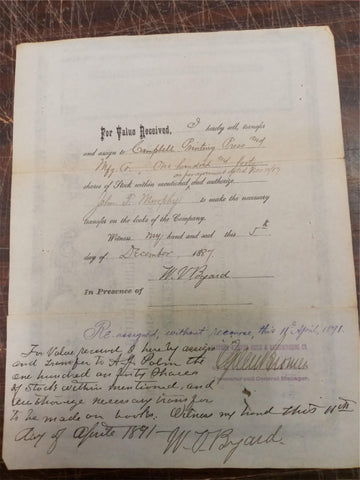 For Value Received, I hereby sell, transfer
and assign to Campbell Printing Press and
Mfg Co., One hundred and forty
as per agreement dated Nov
shares of Stock within mentioned and authorize
John P. Murphy to make the necessary
transfer on the books of the Company.
Witness my hand and seal this 5th
day of December, 1887.
W. V. Byard
In Presence of
Re-assigned, without recourse, this 11th April, 1891.
General Manager.
For Value received I hereby assign
and transfer to the
one hundred an forty Shares
of Stock within mentioned, and
authorize necessary transfer
to be made on books. Witness my hand this 11th
day of Aprile 1891-
W. V. Byard.